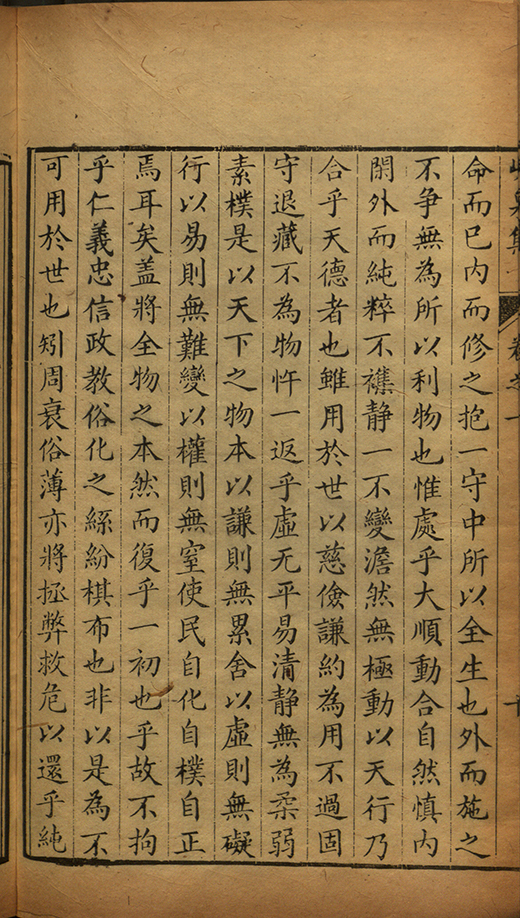 命而已内而修之抱一守中所以全生也外而施之
不争無為所以利物也惟處乎大順動合自然慎内
閑外而純粹不襍静一不變澹然無極動以天行乃
合乎天德者也雖用於世以慈儉謙約為用不過固
守退藏不為物忤一返乎虛无平易清静無為柔弱
素樸是以天下之物本以謙則無累舍以虛則無礙
行以易則無難變以權則無窒使民自化自樸自正
焉耳矣盖將全物之本然而復乎一初也乎故不拘
乎仁義忠信政教俗化之絲紛棋布也非以是為不
可用於世也矧周衰俗薄亦將拯弊救危以還乎純